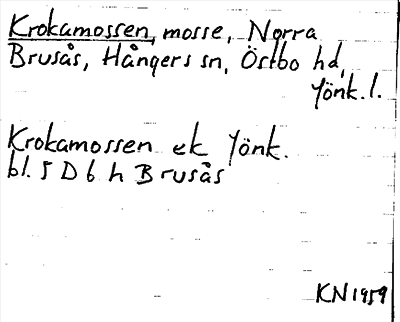 Krokamossen, mosse, Norra
Brusås, Hångers sn, Östbo hd,
Jönk. l.
Krokamossen ek Jönk.
bl. 5 D 6 h Brusås
KN 1959